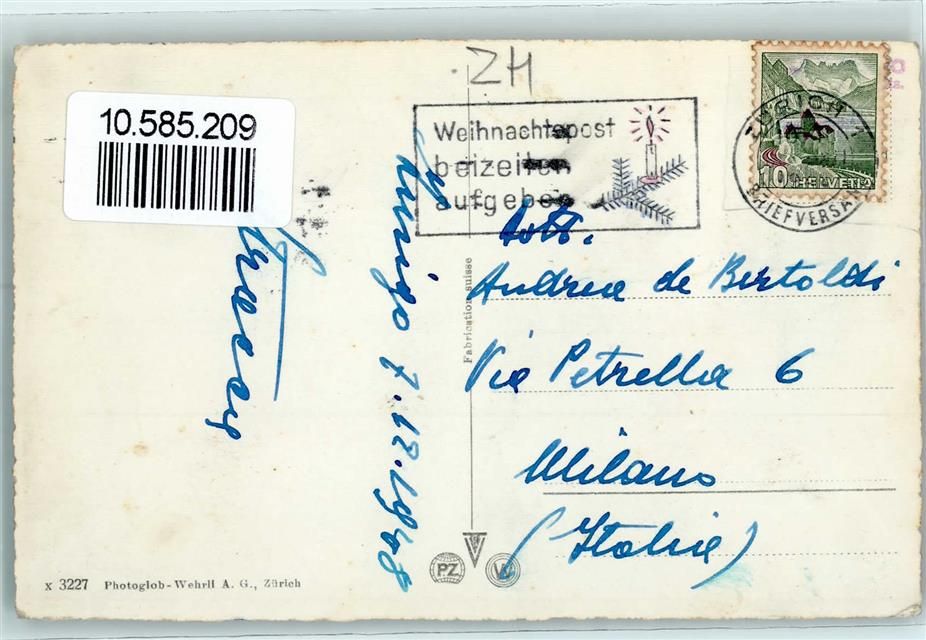 ZH
10.585.209
Weihnachtspost
beizeiten
aufgeben
ZÜRICH 1
BRIEFVERSAND
10 HELVETIA
Zurigo 7.12.1948
Fabrication suisse
Dott.
Andrea de Bertoldi
Via Petrella 6
Milano
(Italia)
PZ
W
x 3227 Photoglob-Wehrli A. G., Zürich